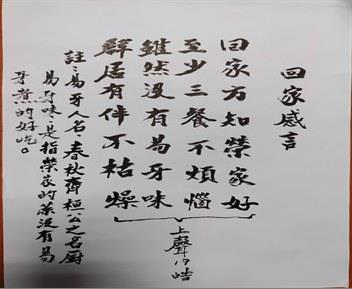 回家感言
回家方知榮家好
至少三餐不煩惱
雖然沒有易牙味
鮮居有伴不枯燥
上聲 皓
註：易牙人名，春秋齊桓公之名廚
易牙味：是指榮家的菜沒有易
牙煮的好吃。